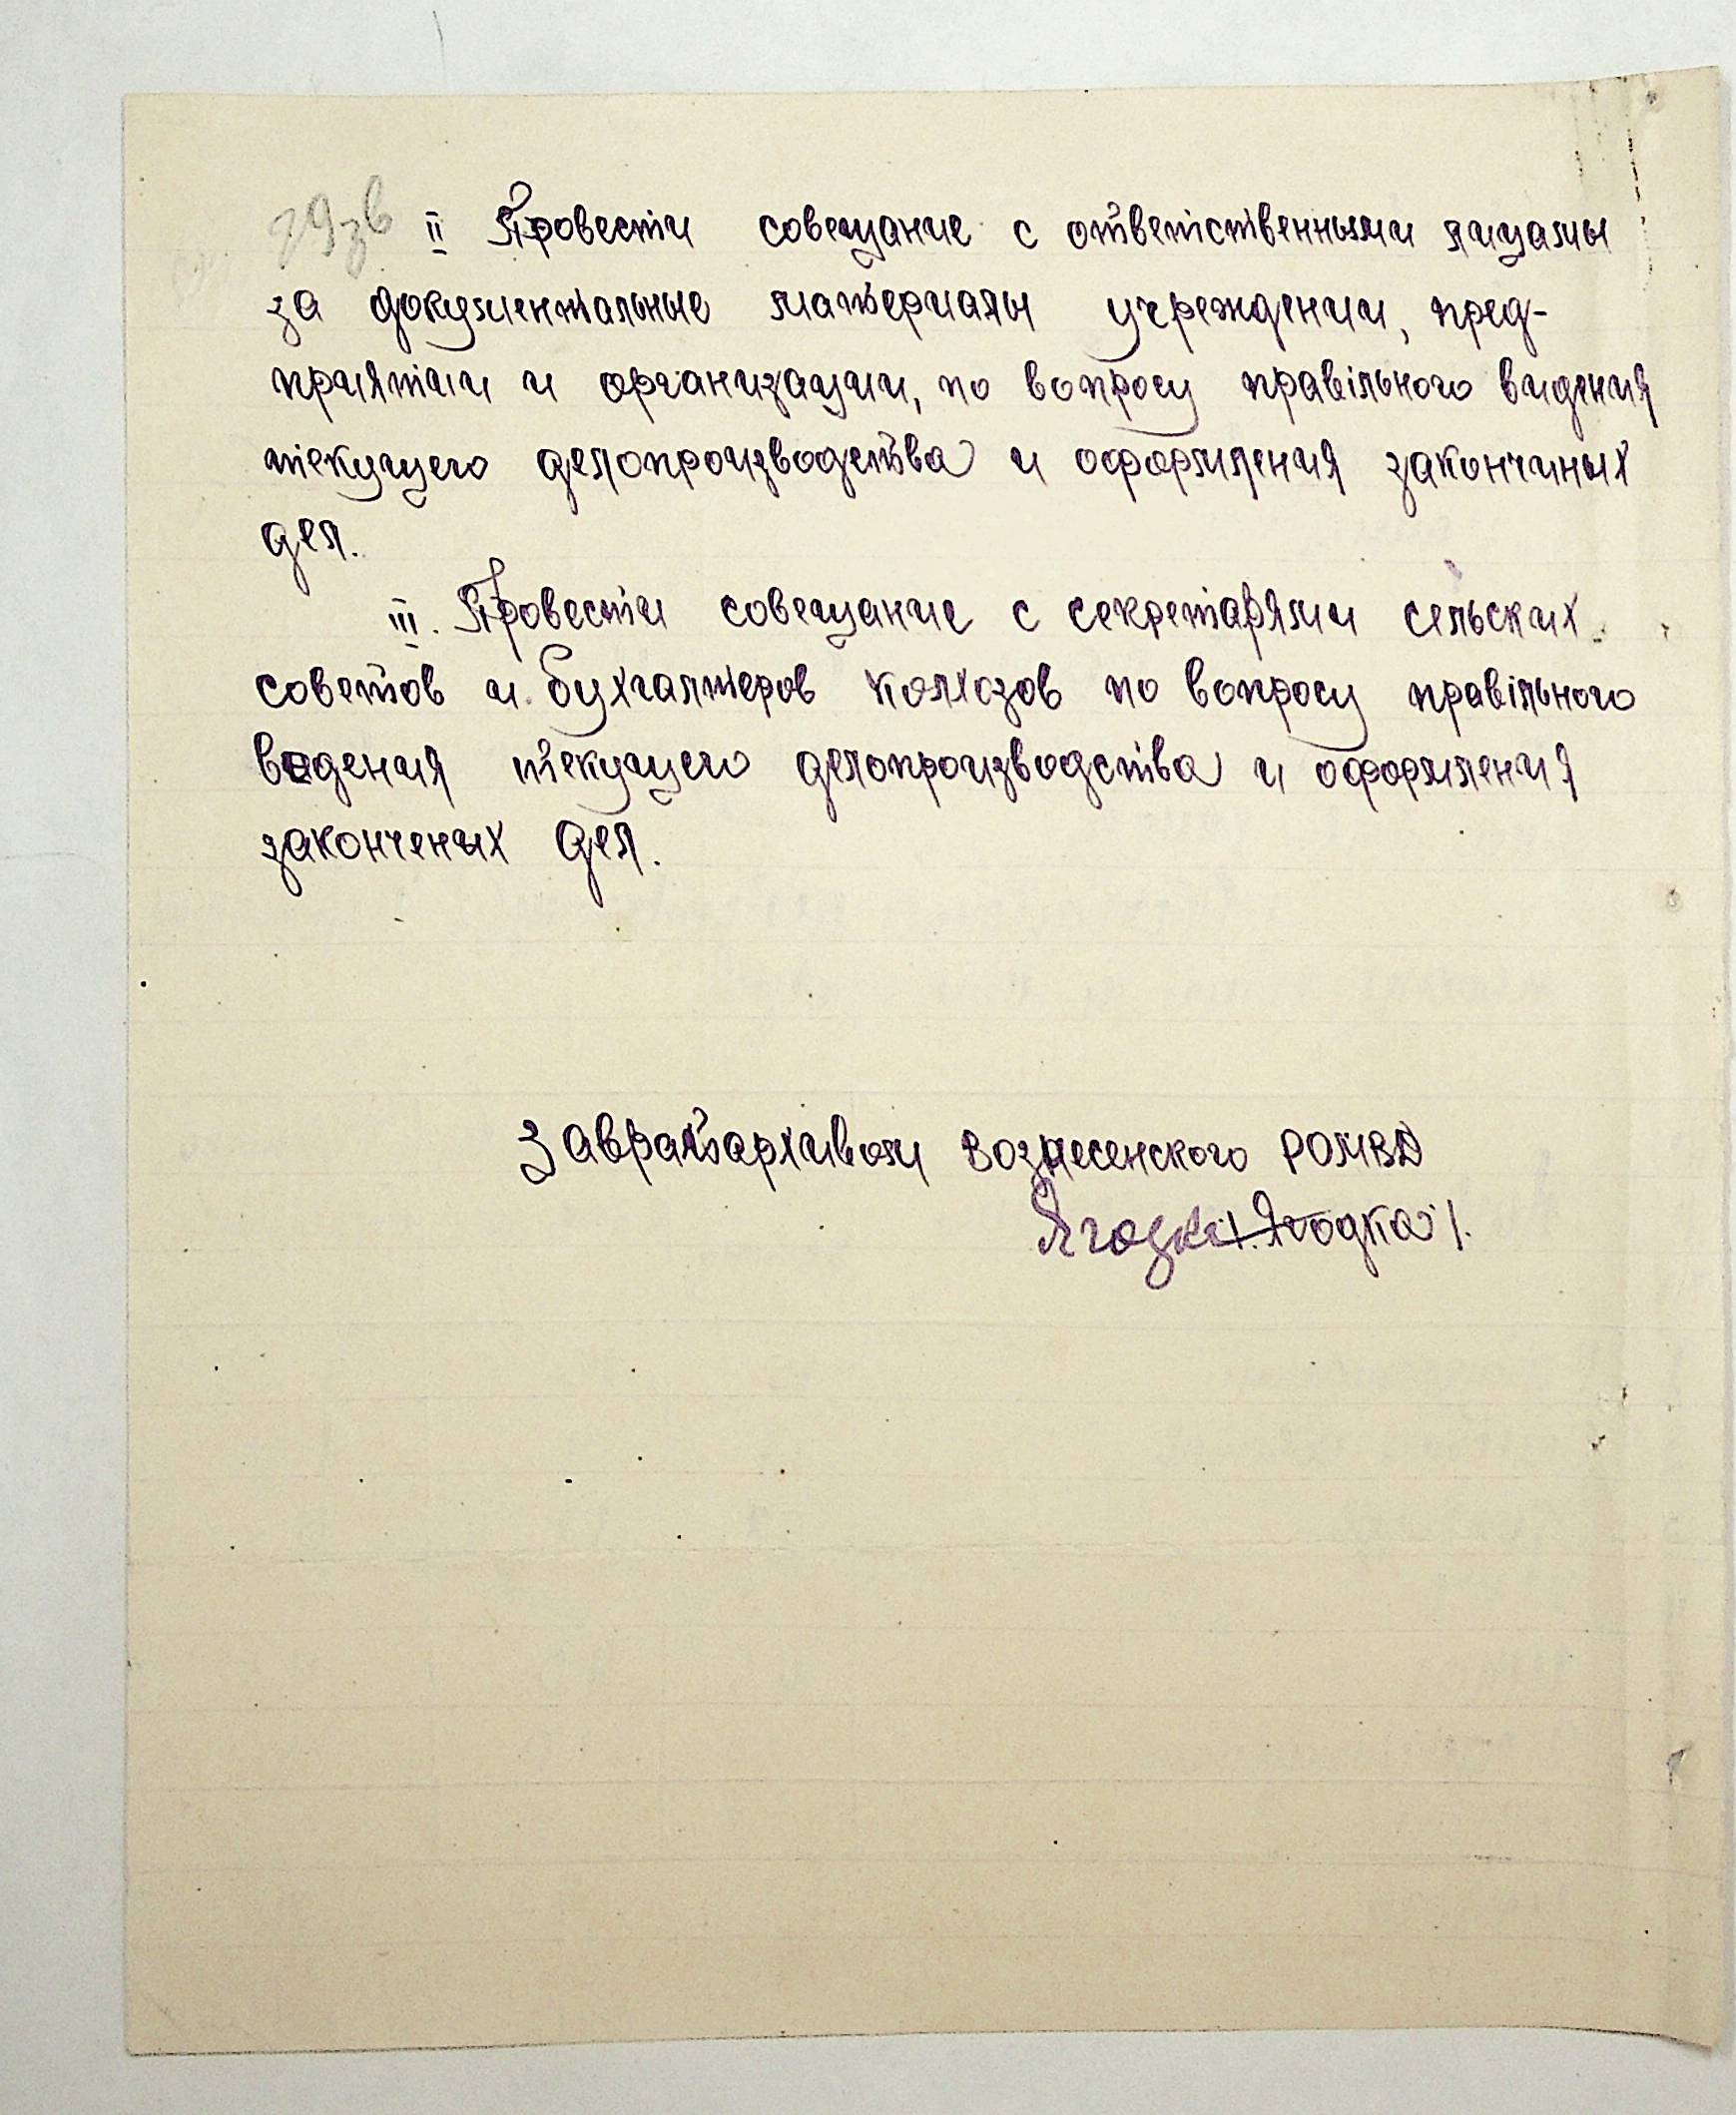 79зв
II Провести совещание с ответственными лицамы
за документальные материалы учреждении, пред-
приятии и организации, по вопросу правільного видения
текущего делопроизводства и оформления закончиных
дел.
III. Провести совещание с секретарями сельских
советов и бухгалтеров колхозов по вопросу правільного
ведения текущего делопроизводства и оформления
законченых дел.
Заврайархивом Вознесенского РОМВД
Ягодка /. Ягодка /.